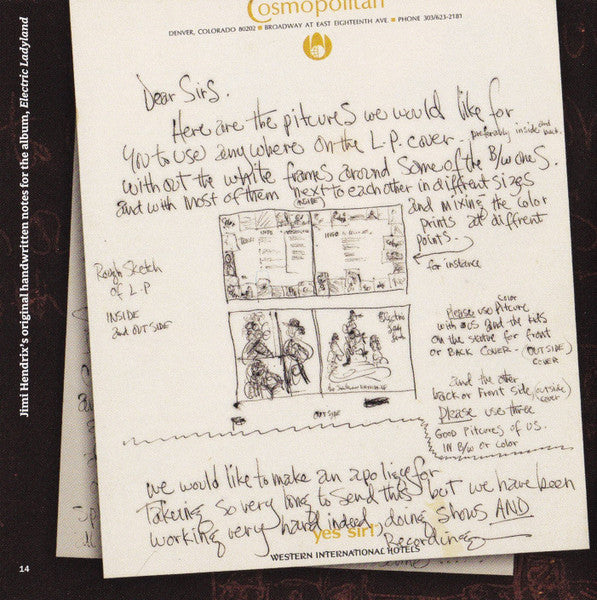 Cosmopolitan
DENVER, COLORADO 80202 ■ BROADWAY AT EAST EIGHTEENTH AVE. ■ PHONE 303/623-2181
Dear Sirs.
Here are the pitcures we would like for
you to use anywhere on the L.P. cover. preferably inside and back.
without the white frames around some of the B/W ones.
and with most of them next to each other in diffrent sizes
(INSIDE)
and mixing the color
prints at diffrent
points.
for instance
Rough Sketch
of L.P
INSIDE
and OUTSIDE
Electric
Lady
Land
OUTSIDE
Please use color Pitcure
with us and the kids
on the statue for front
or BACK COVER - (OUTSIDE)
COVER
and the other
back or front side (outside)
cover
Please use three
Good Pitcures of us.
IN B/W or color
we would like to make an apoligie for
Takeing so very long to send this but we have been
working very hard indeed, doing Shows AND
Recording
yes sir!
WESTERN INTERNATIONAL HOTELS
Jimi Hendrix's original handwritten notes for the album, Electric Ladyland
14